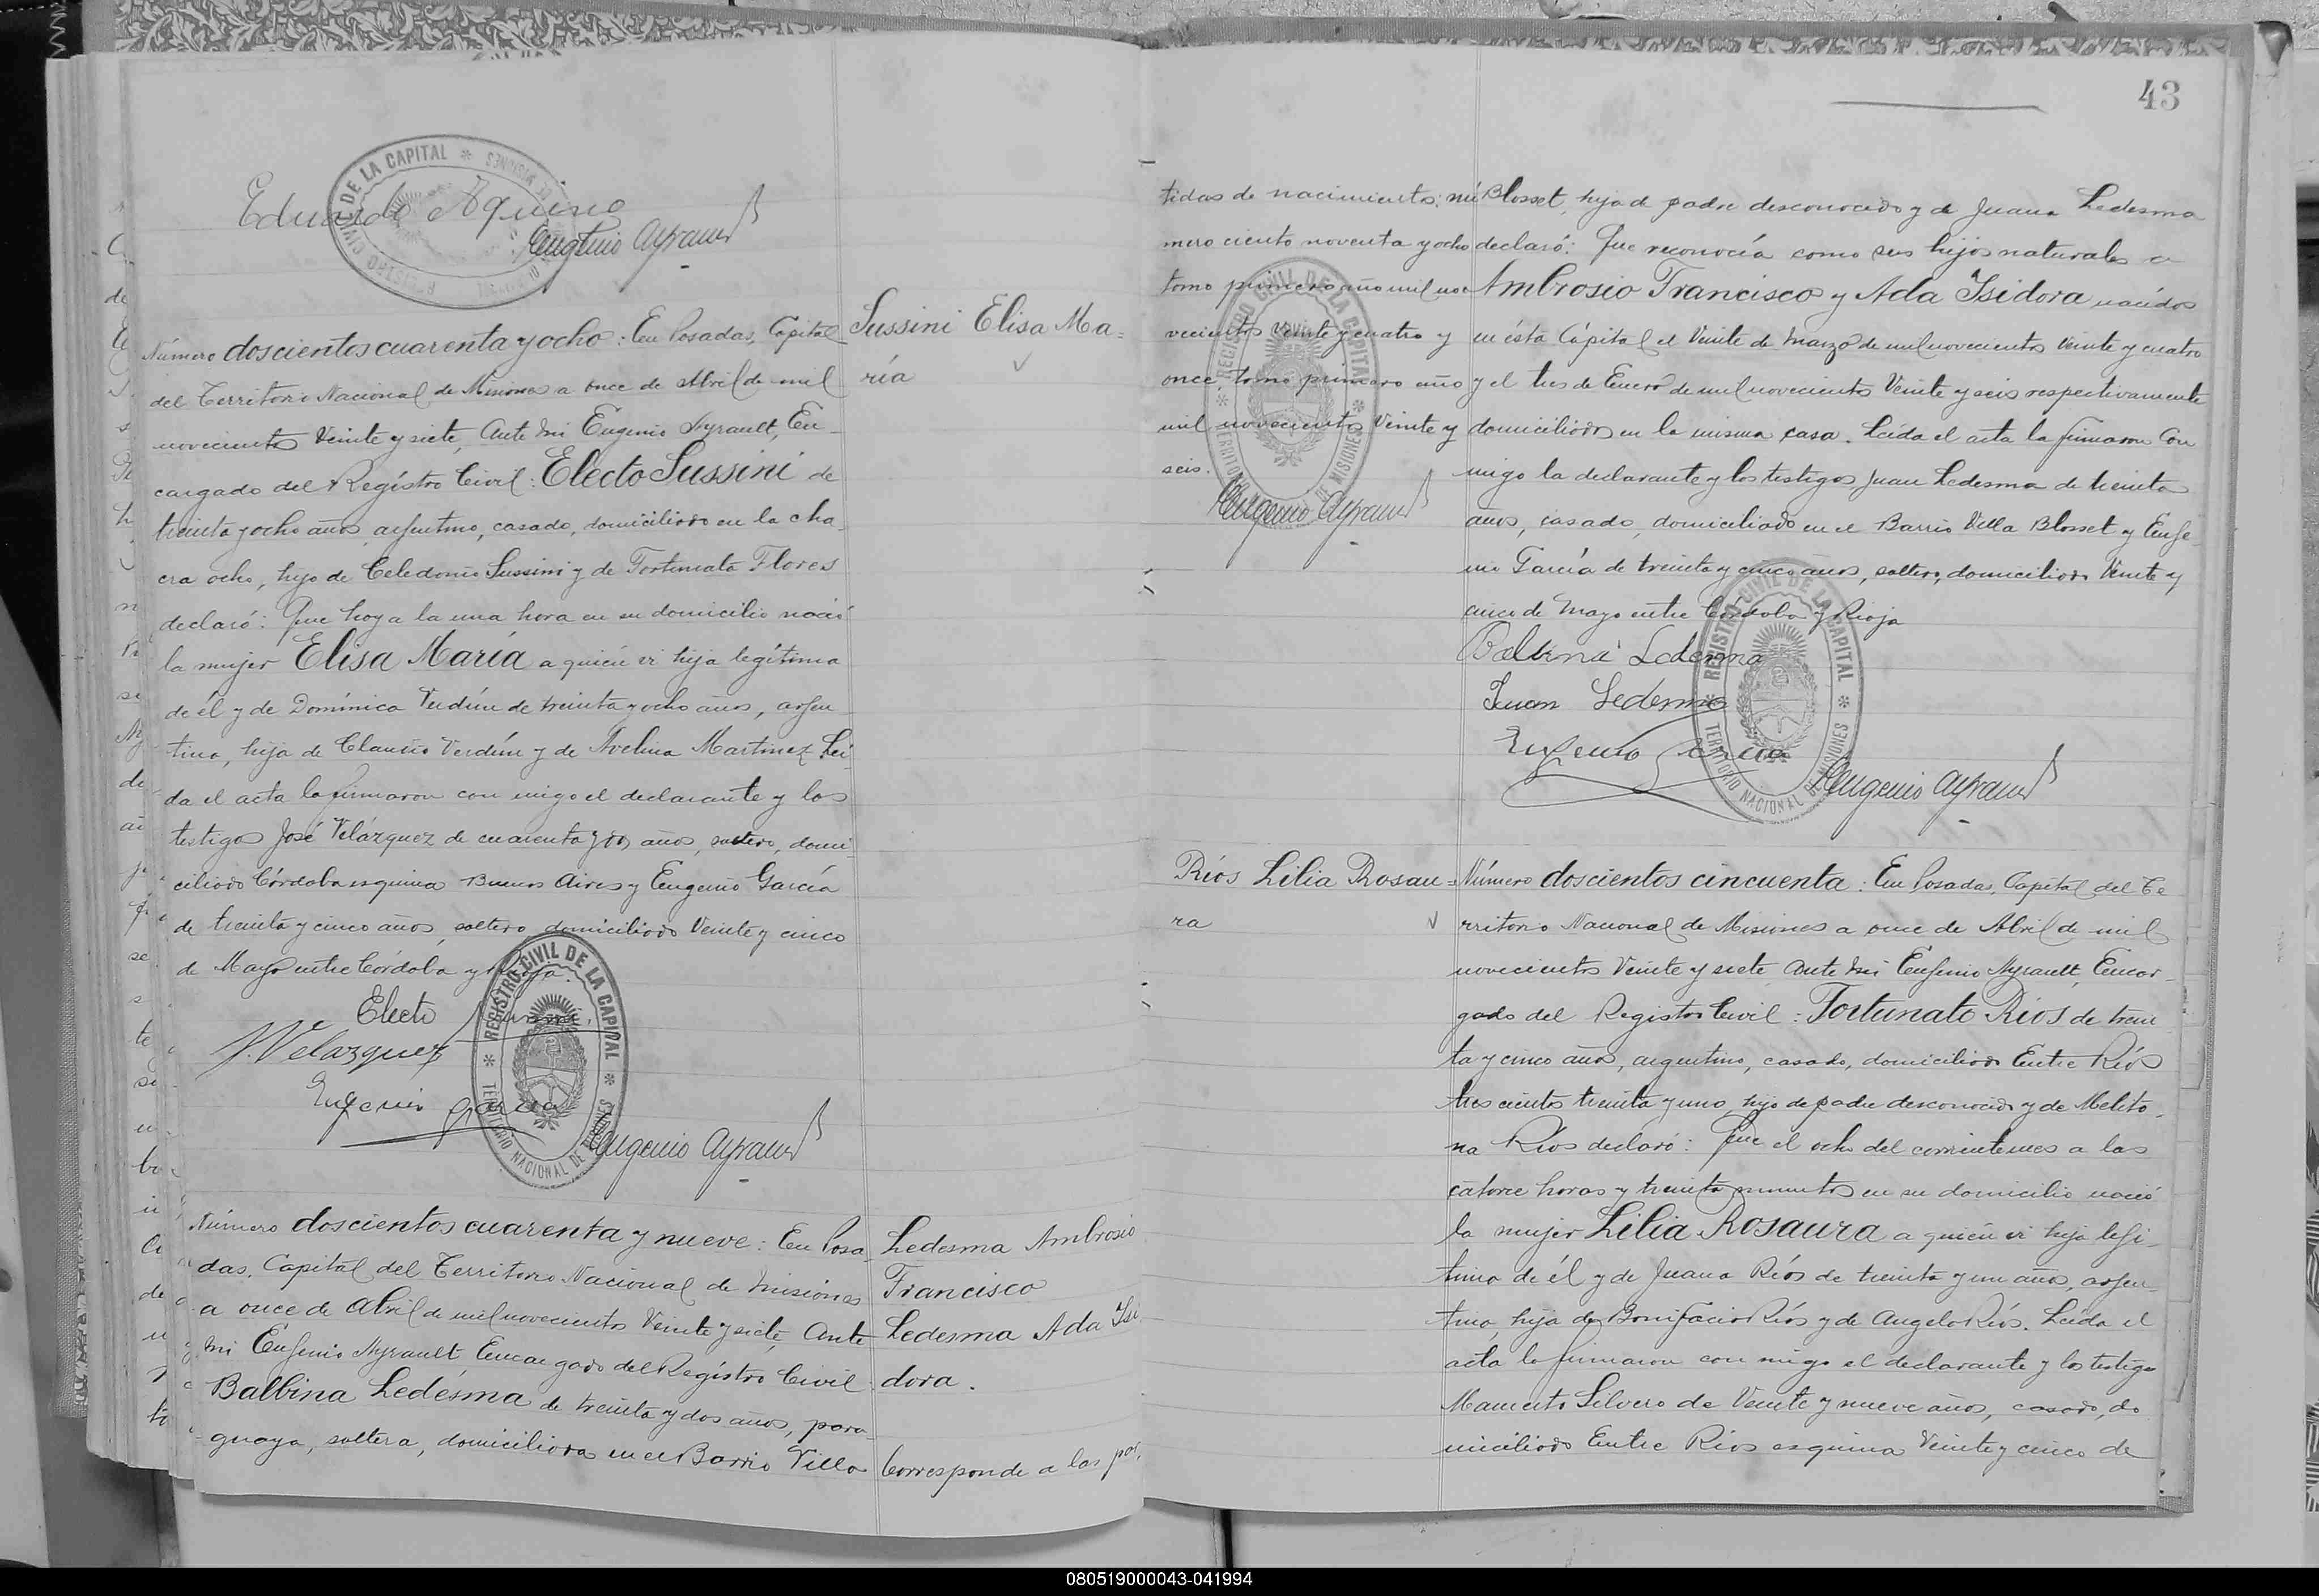 Eduardo Aquino
Eugenio Ayrault
REGISTRO CIVIL DE LA CAPITAL
Número doscientos cuarenta y ocho: En Posadas, Capital
del Territorio Nacional de Misiones a once de Abril de mil
novecientos Veinte y siete, Ante mi Eugenio Ayrault, En
cargado del Registro Civil: Electo Sussini de
treinta y ocho años, argentino, casado, domiciliado en la cha-
cra ocho, hijo de Celedonio Sussini y de Fortunata Flores
declaró: Que hoy a la una hora en su domicilio nació
la mujer Elisa María a quién vi hija legítima
de él y de Domínica Verdún de treinta y ocho años, argen
tina, hija de Claudio Verdún y de Avelina Martinez Leí-
da el acta la firmaron con migo el declarante y los
testigos José Velázquez de cuarenta y dos años, soltero, domi-
ciliado Córdoba esquina Buenos Aires y Eugenio García
de treinta y cinco años, soltero, domiciliado Veinte y cinco
de Mayo entre Córdoba y Rioja.
Electo Sussini.
J. Velazquez
Eugenio Garcia
Eugenio Ayrault
REGISTRO CIVIL DE LA CAPITAL
TERRITORIO NACIONAL DE MISIONES
Sussini Elisa Ma=
ría
Número doscientos cuarenta y nueve: En Posa-
das, Capital del Territorio Nacional de Misiones
a once de Abril de mil novecientos Veinte y siete, Ante
mi Eugenio Ayrault, Encargado del Registro Civil:
Balbina Ledesma de treinta y dos años, para-
guaya, soltera, domiciliada en el Barrio Villa
Ledesma Ambrosio
Francisco
Ledesma Ada Isi-
dora.
Corresponde a las par-
43
tidas de nacimientos: nú
mero ciento noventa y ocho
tomo primero año mil no-
vecientos veinte y cuatro y
once, tomo primero año
mil novecientos Veinte y
seis.
Eugenio Ayrault
REGISTRO CIVIL DE LA CAPITAL
TERRITORIO NACIONAL DE MISIONES
Blosset, hija de padre desconocido y de Juana Ledesma
declaró: Que reconocía como sus hijos naturales a
Ambrosio Francisco y Ada Isidora nacidos
en ésta Cápital el Veinte de Marzo de mil novecientos Veinte y cuatro
y el tres de Enero de mil novecientos Veinte y seis respectivamente
domiciliados en la misma casa. Leída el acta la firmaron Con
migo la declarante y los testigos Juan Ledesma de treinta
años, casado, domiciliado en el Barrio Villa Blosset y Euge-
nio García de treinta y cinco años, soltero, domiciliado Veinte y
cinco de Mayo entre Córdoba y Rioja
Balbina Ledesma
Juan Ledesma
Eugenio Garcia
Eugenio Ayrault
REGISTRO CIVIL DE LA CAPITAL
TERRITORIO NACIONAL DE MISIONES
Ríos Lilia Rosau=
ra
Número doscientos cincuenta: En Posadas, Capital del Te
rritorio Nacional de Misiones a once de Abril de mil
novecientos Veinte y siete, Ante mi Eugenio Ayrault, Encar-
gado del Registro Civil: Fortunato Ríos de trein
ta y cinco años, argentino, casado, domiciliado Entre Ríos
tres cientos treinta y uno, hijo de padre desconocido y de Melito-
na Ríos declaró: Que el ocho del corriente mes a las
catorce horas y treinta minutos en su domicilio nació
la mujer Lilia Rosaura a quién vi hija legí-
tima de él y de Juana Ríos de treinta y un años, argen-
tina, hija de Bonifacio Ríos y de Angela Ríos. Leída el
acta la firmaron con migo el declarante y los testigos
Mamerto Silvero de Veinte y nueve años, casado, do
miciliado Entre Rios esquina Veinte y cinco de
080519000043-041994